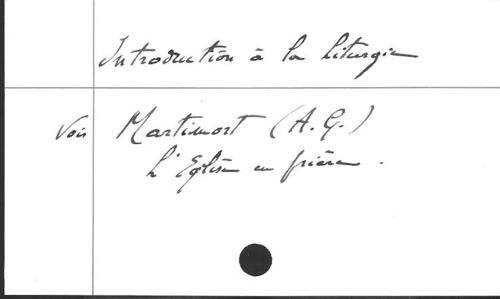 Introduction à la liturgie
Voir Martimort (A.G.)
L'Eglise en prière.